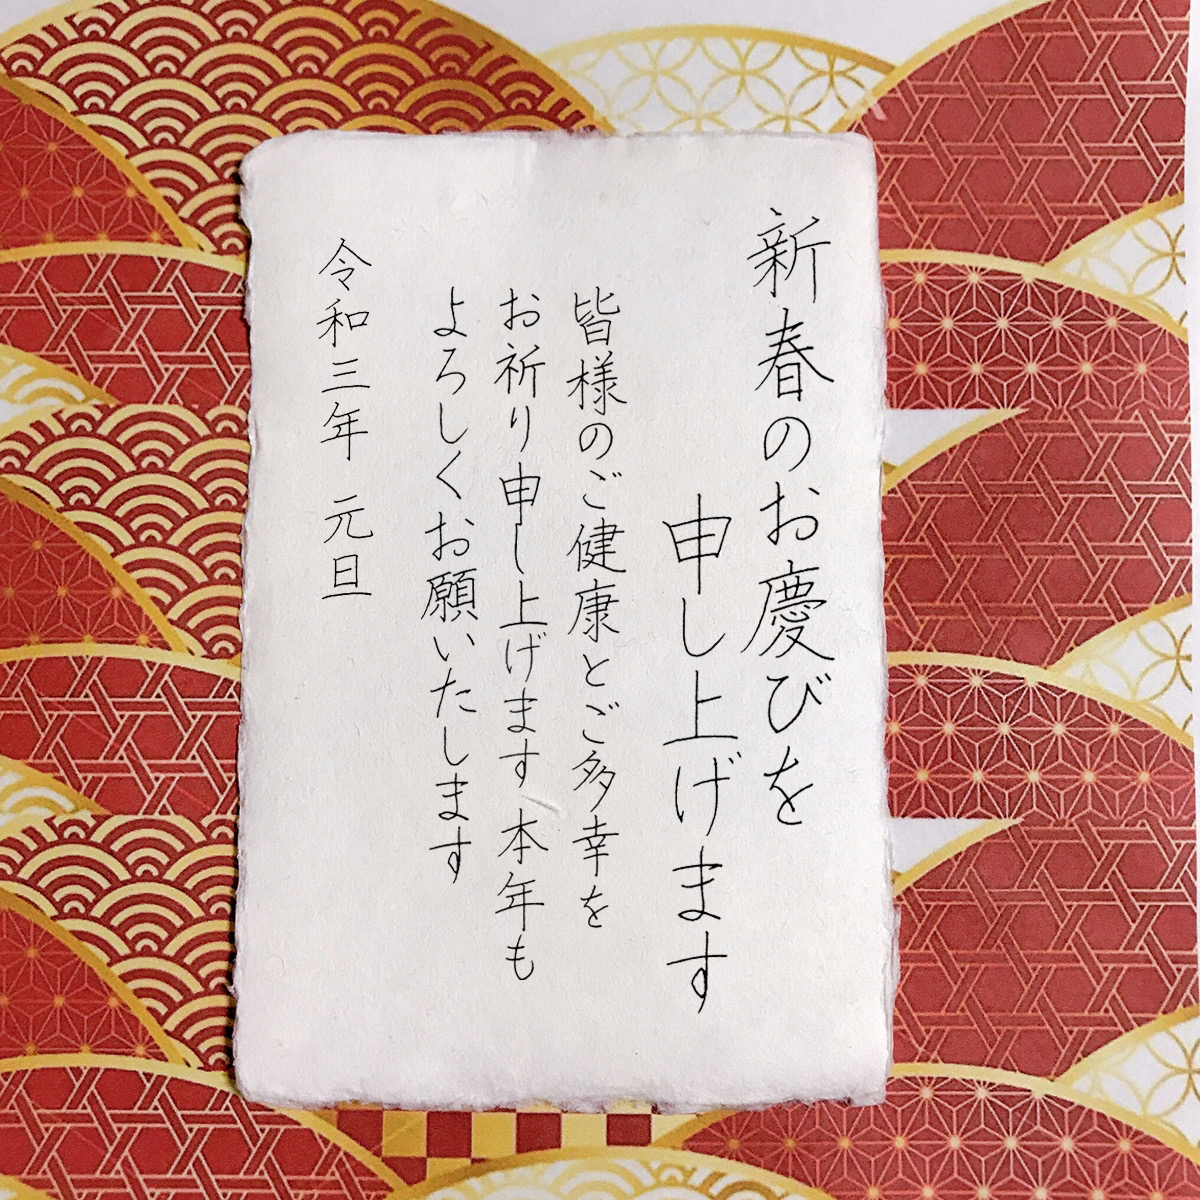 新春のお慶びを
申し上げます
皆様のご健康とご多幸を
お祈り申し上げます 本年も
よろしくお願いいたします
令和三年 元旦